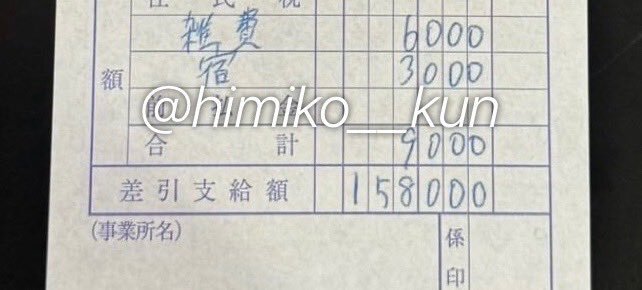 住民税
雑費 6000
宿 3000
@himiko__kun
額
合計 9000
差引支給額 158000
(事業所名)
係印